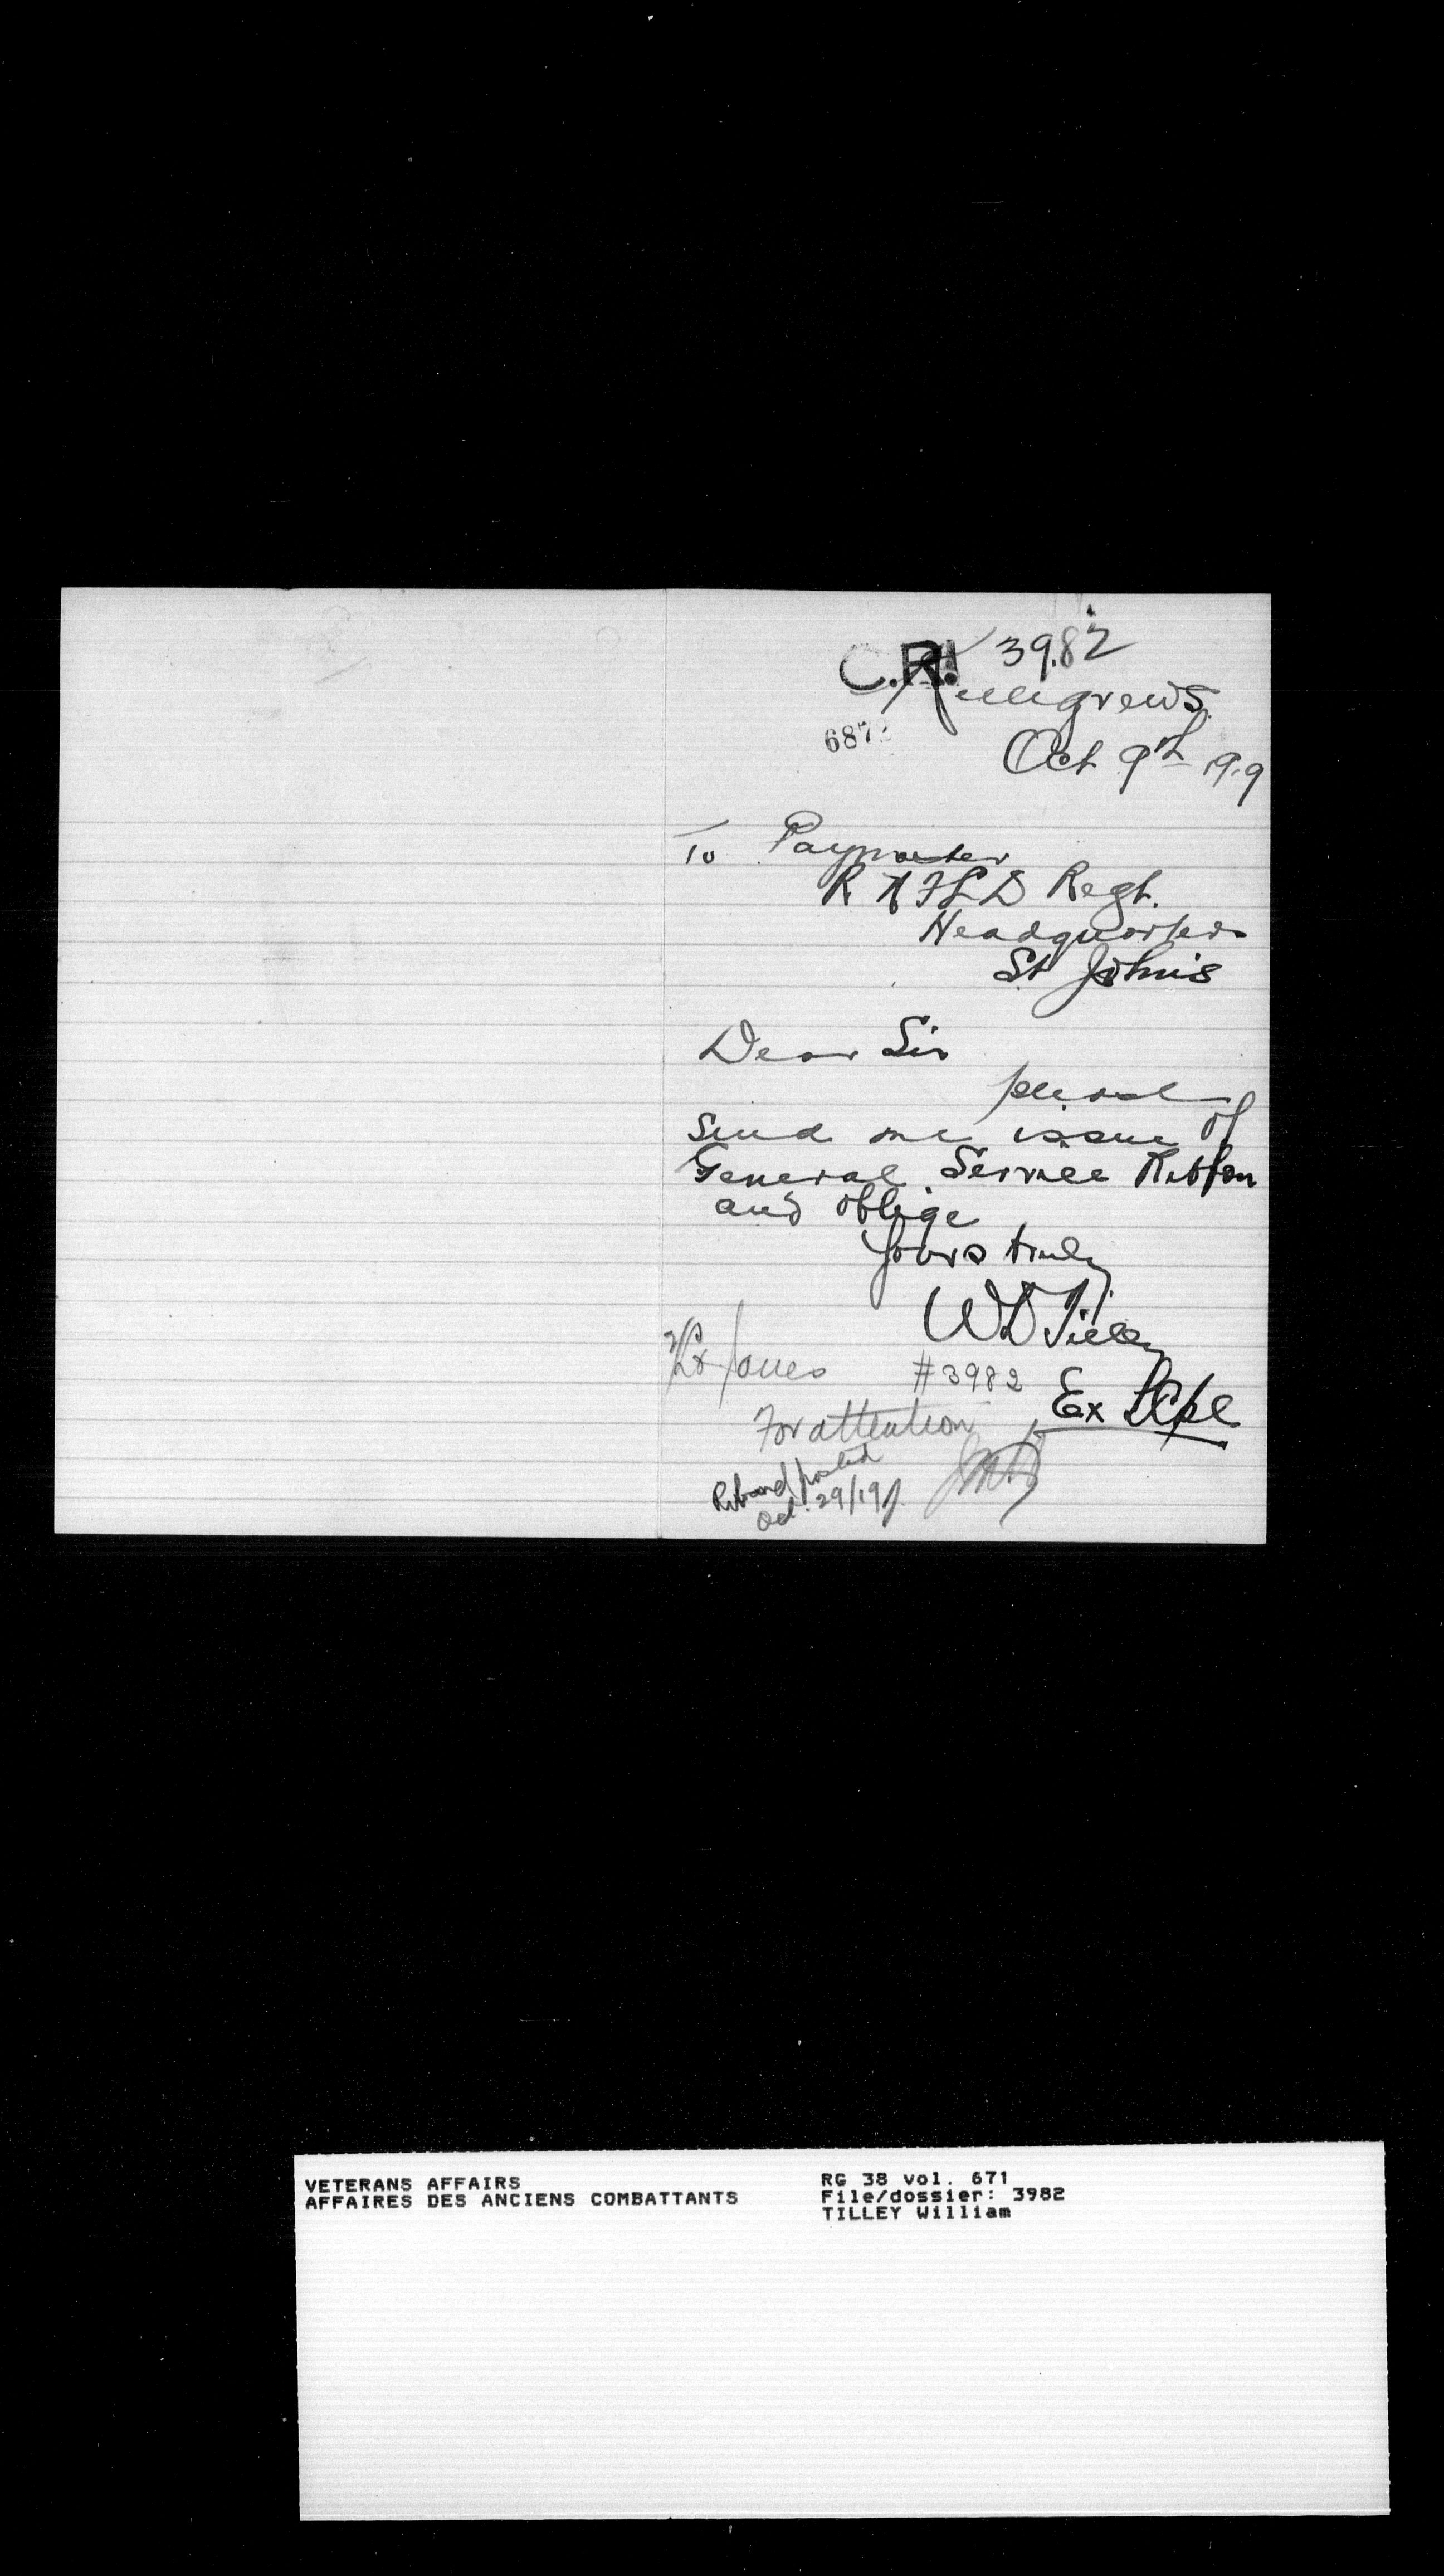 C.R. 3982
Kelligrews.
Oct 9th 1919
687
To Paymaster
R NFLD Regt.
Headquarters
St John's
Dear Sir
please
send me issue of
General Service Ribbon
and oblige
yours truly
W D Tilley
#3982 Ex LCpl
2/Lt Jones
For attention
Riband posted
Oct. 29/19
VETERANS AFFAIRS
AFFAIRES DES ANCIENS COMBATTANTS
RG 38 vol. 671
File/dossier: 3982
TILLEY William